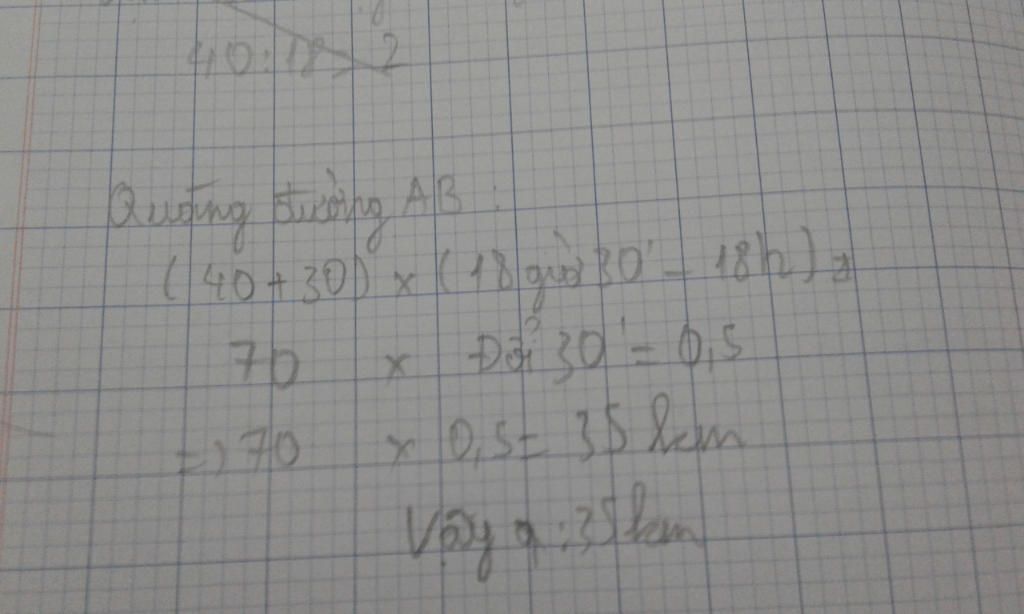 40:18 = 2
Quãng đường AB :
(40+30) x (18 giờ 30' - 18h) =
70 x Đổi 30' = 0,5
=> 70 x 0,5 = 35 km
Vậy : 35 km